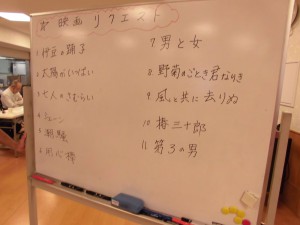 映画リクエスト
1. 伊豆の踊子
2. 太陽がいっぱい
3. 七人のさむらい
4. シェーン
5. 潮騒
6. 用心棒
7. 男と女
8. 野菊のごとき君なりき
9. 風と共に去りぬ
10. 椿三十郎
11. 第3の男